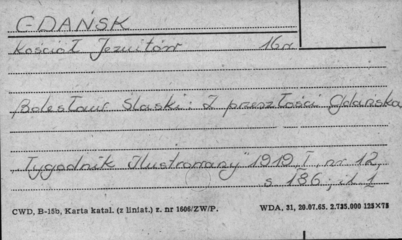 GDAŃSK
Kościół Jezuitów 16 r.
Bolesław Slaski: Z przeszłości Gdańska
"Tygodnik Ilustrowany" 1919, I, nr 12,
s. 186, il. 1
CWD, B-15b, Karta katal. (z liniat.) z. nr 1606/ZW/P. WDA, 31, 29.07.65. 2.735.000 125×75